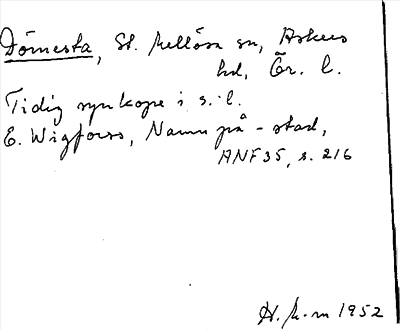 Dömesta, St. Mellösa sn, Askers
hd, Ör. l.
Tidig synkope i s.l.
E. Wigforss, Namn på -stad,
ANF 35, s. 216
H. M-m 1952